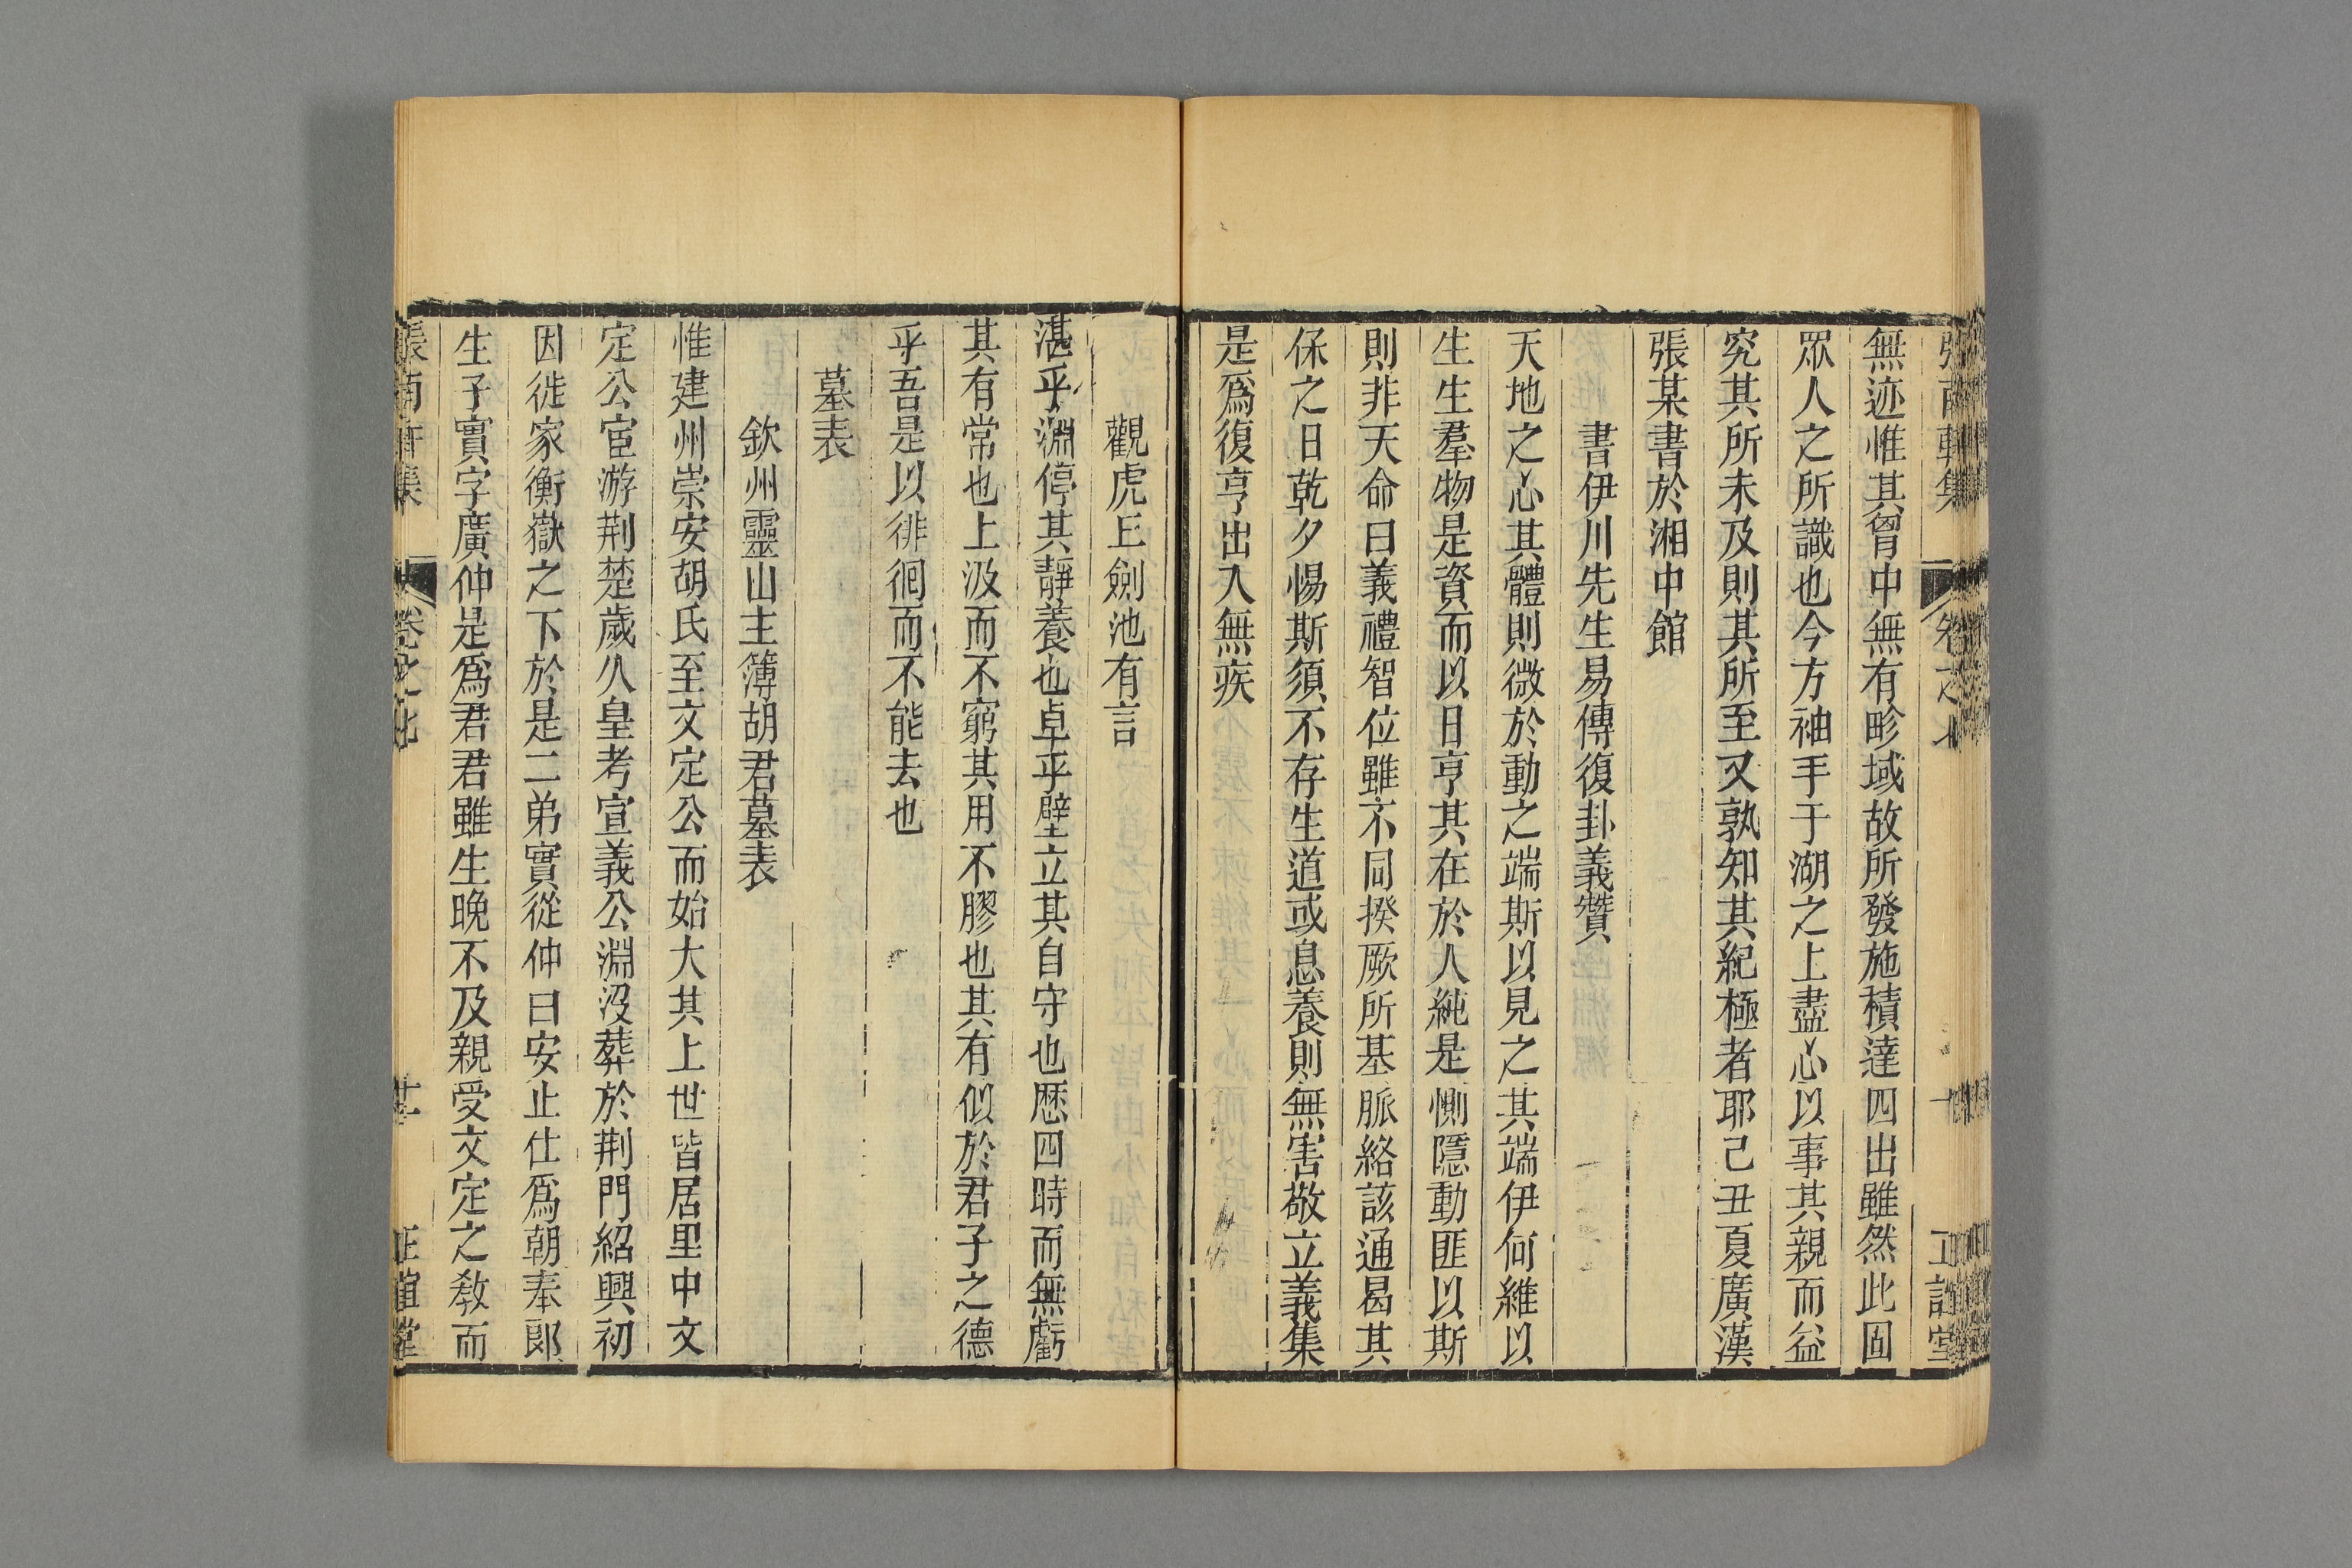 張南軒集 卷之七 正誼堂
無迹惟其胷中無有畛域故所發施積達四出雖然此固
眾人之所識也今方袖手于湖之上盡心以事其親而益
究其所未及則其所至又孰知其紀極者耶己丑夏廣漢
張某書於湘中館
書伊川先生易傳復卦義贊
天地之心其體則微於動之端斯以見之其端伊何維以
生生羣物是資而以日亨其在於人純是惻隱動匪以斯
則非天命曰義禮智位雖不同揆厥所基脈絡該通曷其
保之日乾夕惕斯須不存生道或息養則無害敬立義集
是為復亨出入無疾
觀虎丘劍池有言
湛乎淵停其靜養也卓乎壁立其自守也歷四時而無虧
其有常也上汲而不窮其用不膠也其有似於君子之德
乎吾是以徘徊而不能去也
墓表
欽州靈山主簿胡君墓表
惟建州崇安胡氏至文定公而始大其上世皆居里中文
定公宦游荊楚歲久皇考宣義公淵沒葬於荊門紹興初
因徙家衡嶽之下於是二弟實從仲曰安止仕為朝奉郎
生子實字廣仲是為君君雖生晚不及親受文定之教而
張南軒集 卷之七 正誼堂